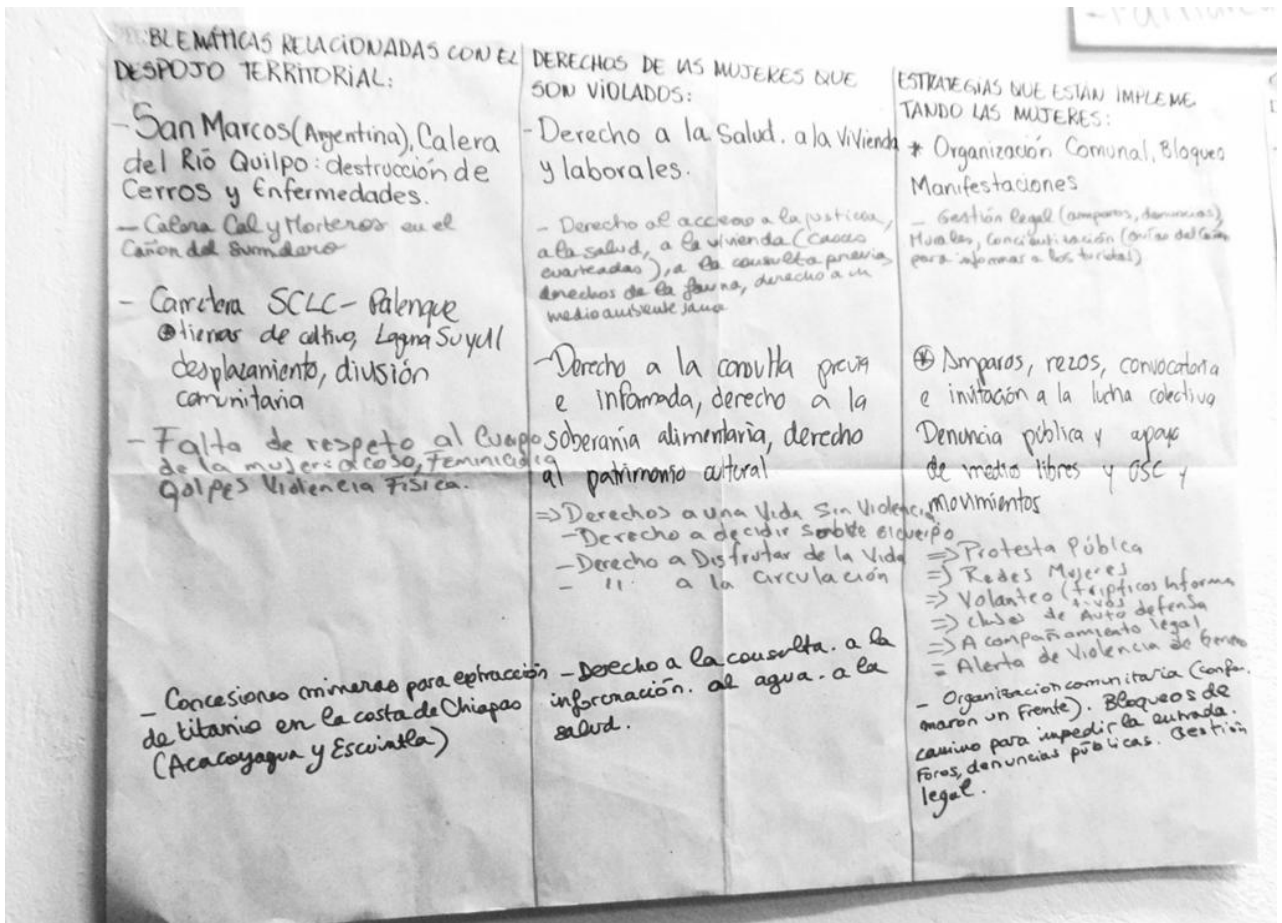 BLEMÁTICAS RELACIONADAS CON EL
DESPOJO TERRITORIAL:
- San Marcos (Argentina), Calera
del Río Quilpo: destrucción de
Cerros y Enfermedades.
- Calera Cal y Morteros en el
Cañon del Sumidero
- Carretera SCLC - Palenque
tierras de cultivo, Laguna Suyul
desplazamiento, división
comunitaria
- Falta de respeto al Cuerpo
de la mujer: acoso, Feminicidio
golpes Violencia Fisica.
- Concesiones mineras para extracción
de titanio en la costa de Chiapas
(Acacoyagua y Escuintla)
DERECHOS DE LAS MUJERES QUE
SON VIOLADOS:
- Derecho a la Salud. a la Vivienda
y laborales.
- Derecho al acceso a la justicia,
a la salud, a la vivienda (casas
cuarteadas), a la consulta previa
derechos de la fauna, derecho a un
medio ambiente sano
- Derecho a la consulta previa
e informada, derecho a la
soberanía alimentaria, derecho
al patrimonio cultural
=> Derechos a una Vida Sin Violencia
- Derecho a decidir sobre el cuerpo
- Derecho a Disfrutar de la Vida
- " a la circulación
- Derecho a la consulta. a la
información. al agua. a la
salud.
ESTRATEGIAS QUE ESTÁN IMPLEME
TANDO LAS MUJERES:
* Organización Comunal, Bloqueo
Manifestaciones
- Gestión legal (amparos, denuncias),
Murales, concientización (guías del Cañón
para informar a los turistas)
* Amparos, rezos, convocatoria
e invitación a la lucha colectiva
Denuncia pública y apoyo
de medios libres y OSC y
movimientos
=> Protesta Pública
=> Redes Mujeres
=> Volanteo (trípticos Informa
tivos
=> clases de Auto defensa
=> Acompañamiento legal
= Alerta de Violencia de Genero
- Organización comunitaria (confor.
maron un Frente). Bloqueos de
camino para impedir la entrada.
Foros, denuncias públicas. Gestión
legal.